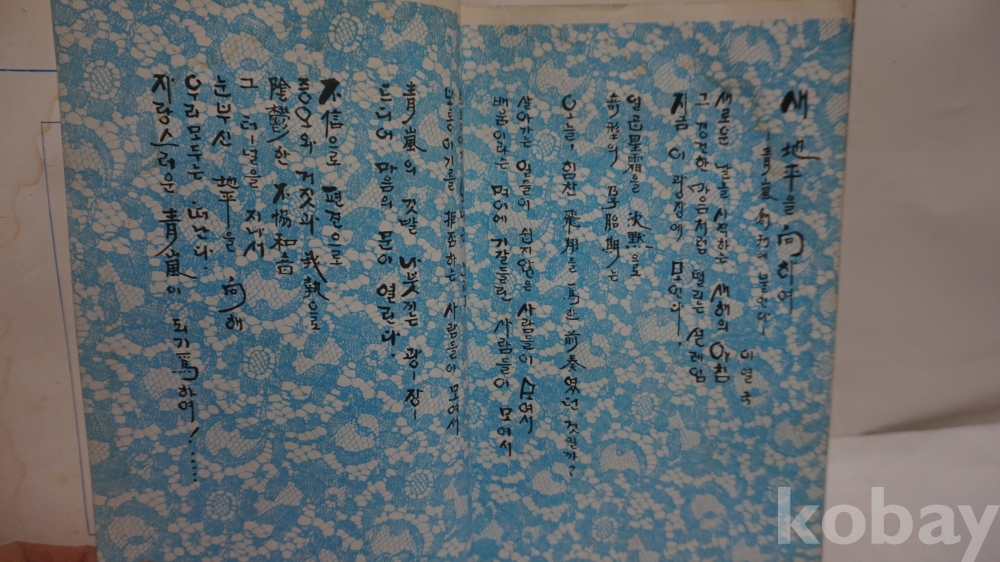 새 地平을 向하여
—靑嵐 創刊에 붙인다—
이열국
새로운 날을 시작하는 새해의 아침
그 경건한 마음처럼 떨리는 설레임
지금 이 광장에 모인다.
일곱星霜을 沈默으로
奇型의 孕胎期는
오늘, 힘찬 飛翔을 爲한 前奏였던 것일까?
살아가는 일들이 쉽지않은 사람들이 모여서
배움이라는 멍에에 기갈들린 사람들이 모여서
이기를 拒否하는 사람들이 모여서
靑嵐의 깃발 나부끼는 광—장—
드디어 마음의 문이 열린다.
不信으로 편견으로
증오와 거짓과 我執으로
陰鬱한 不協和音
그 터—널을 지나서
눈부신 地平을 向해
우리모두는 떠난다.
자랑스러운 靑嵐이 되기 爲하여! .....
kobay